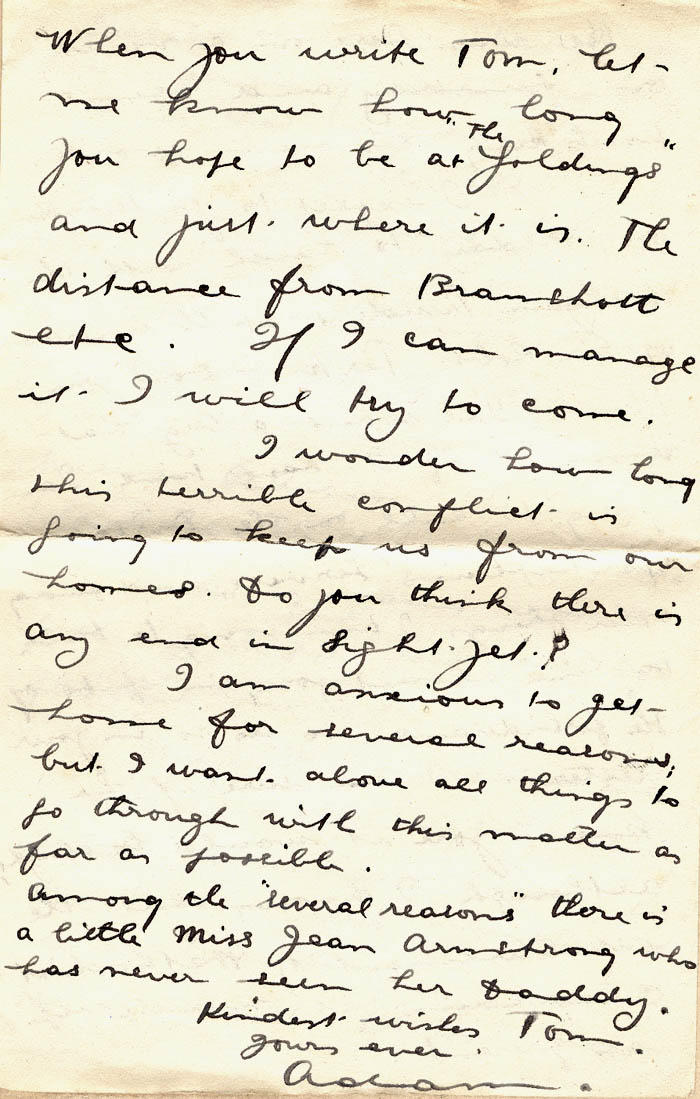 When you write Tom, let
me know how long
you hope to be at "The Goldings"
and just where it is. The
distance from Bramshott
etc. If I can manage
it I will try to come.
I wonder how long
this terrible conflict is
going to keep us from our
homes. Do you think there is
any end in sight yet?
I am anxious to get
home for several reasons,
but I want above all things to
go through with this matter as
far as possible.
Among the "several reasons" there is
a little Miss Jean Armstrong who
has never seen her Daddy.
Kindest wishes Tom.
yours ever.
Adam.